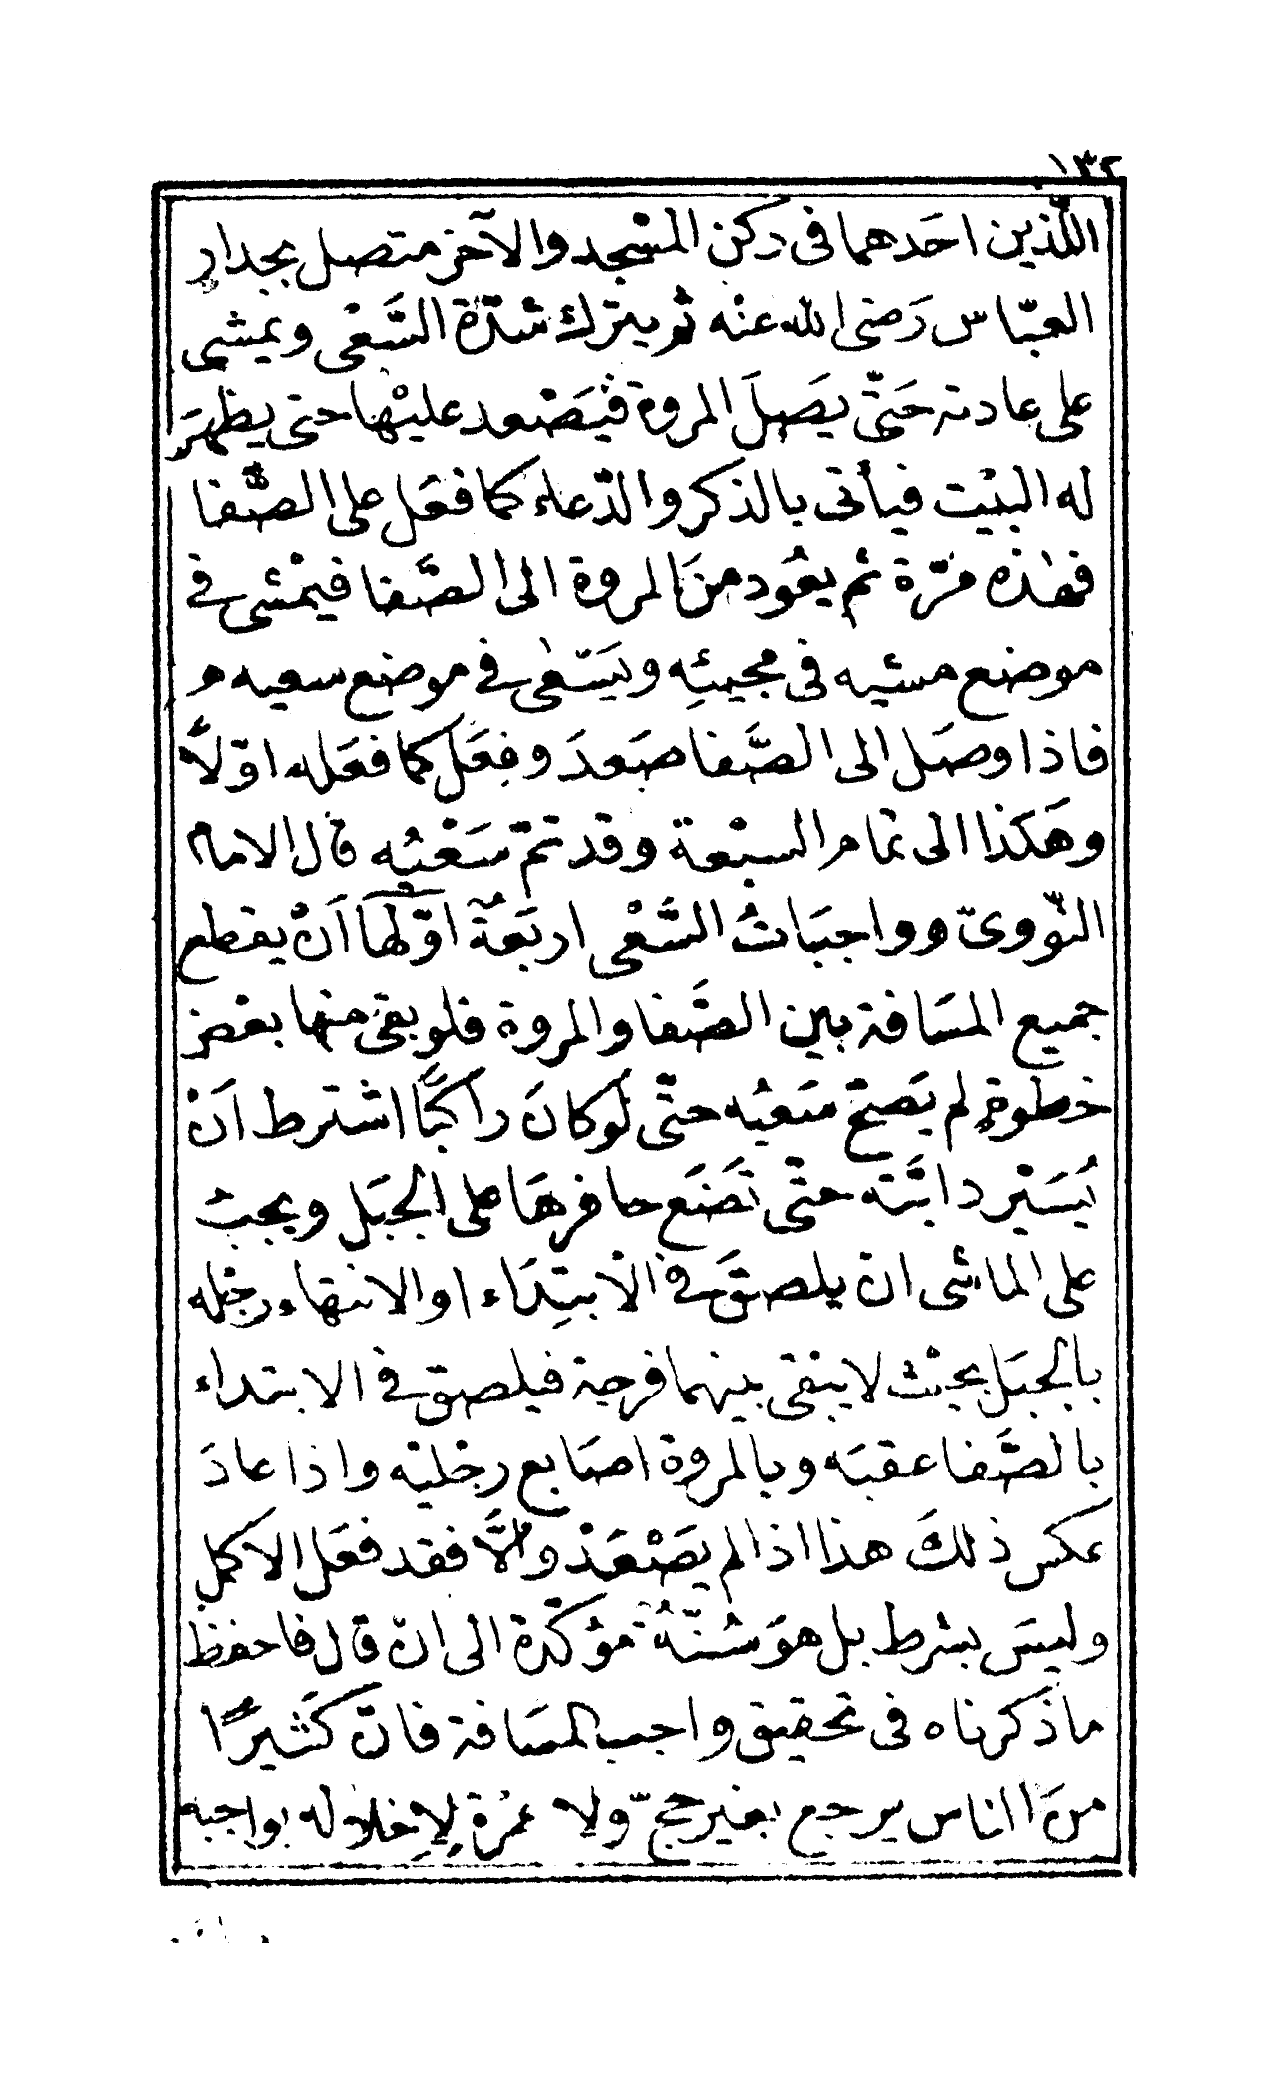 ١٣٢
اللّذين احَدهما فى ركن المسْجد والآخر متصل بجدار
العبّاس رَضى الله عنْه ثم يترك شدّة السَّعْى ويمشى
على عادته حَتّى يَصِلَ المروة فيَصْعد عليْها حتى يظهَرَ
له البيْت فيأتى بالذكر والدّعاء كما فعَل على الصَّفا
فهٰذه مَرّة ثم يعُود منَ المروة الى الصَّفا فيمْشى فى
موضع مشيه فى مجيئِه ويَسْعٰى فى موضع سعيه م
فاذا وصَل الى الصَّفا صَعدَ وفعَل كما فعَله اوّلاً
وهَكذا الى تمام السبْعة وقد تمّ سَعْيُه قال الامام
النّووىّ وواجبَاتُ السَّعْى اربَعةٌ اوّلها اَنْ يقطع
جميع المسَافة بين الصَّفا والمروة فلو بقى منها بعْض
خطوةٍ لم يَصحّ سَعْيُه حتّى لَوكانَ راكبًا اشترط اَنْ
يُسَيّر دابَّته حتّى تَضَع حافرهَا على الجبَل ويجبُ
على الماشى ان يلصقَ فى الابتِدَاء او الانتهاء رجْله
بالجبَل بحيْث لا يبْقى بينهما فرجة فيلصق فى الابتداء
بالصَّفا عقبَه وبالمروة اصَابع رجْليْه واذا عادَ
عكس ذلكَ هذا اذا لم يَصْعَدْ والَّا فقد فعَل الاكمل
وليسَ بشرط بل هوَ سُنّةٌ مؤكّدة الى انْ قال فاحفظ
ماذَكرناه فى تحقيق واجب المسَافة فانّ كَثيرًا
منَ الناس يرجع بغير حجّ ولا عمْرة لإخلاله بواجبه